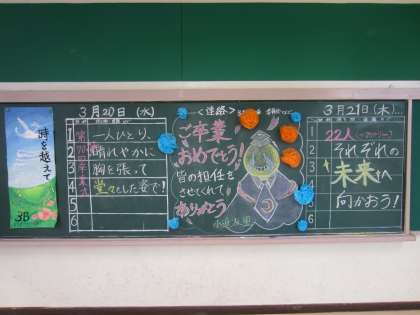 時を越えて
3B
3月20日(水)
1
一人ひとり、
2
晴れやかに
3
胸を張って
4
堂々とした姿で!
5
6
<連絡>
ご卒業
おめでとう!
皆の担任を
させてくれて
ありがとう
3月21日(木)
1
22人
2
それぞれの
3
未来へ
4
向かおう!
5
6